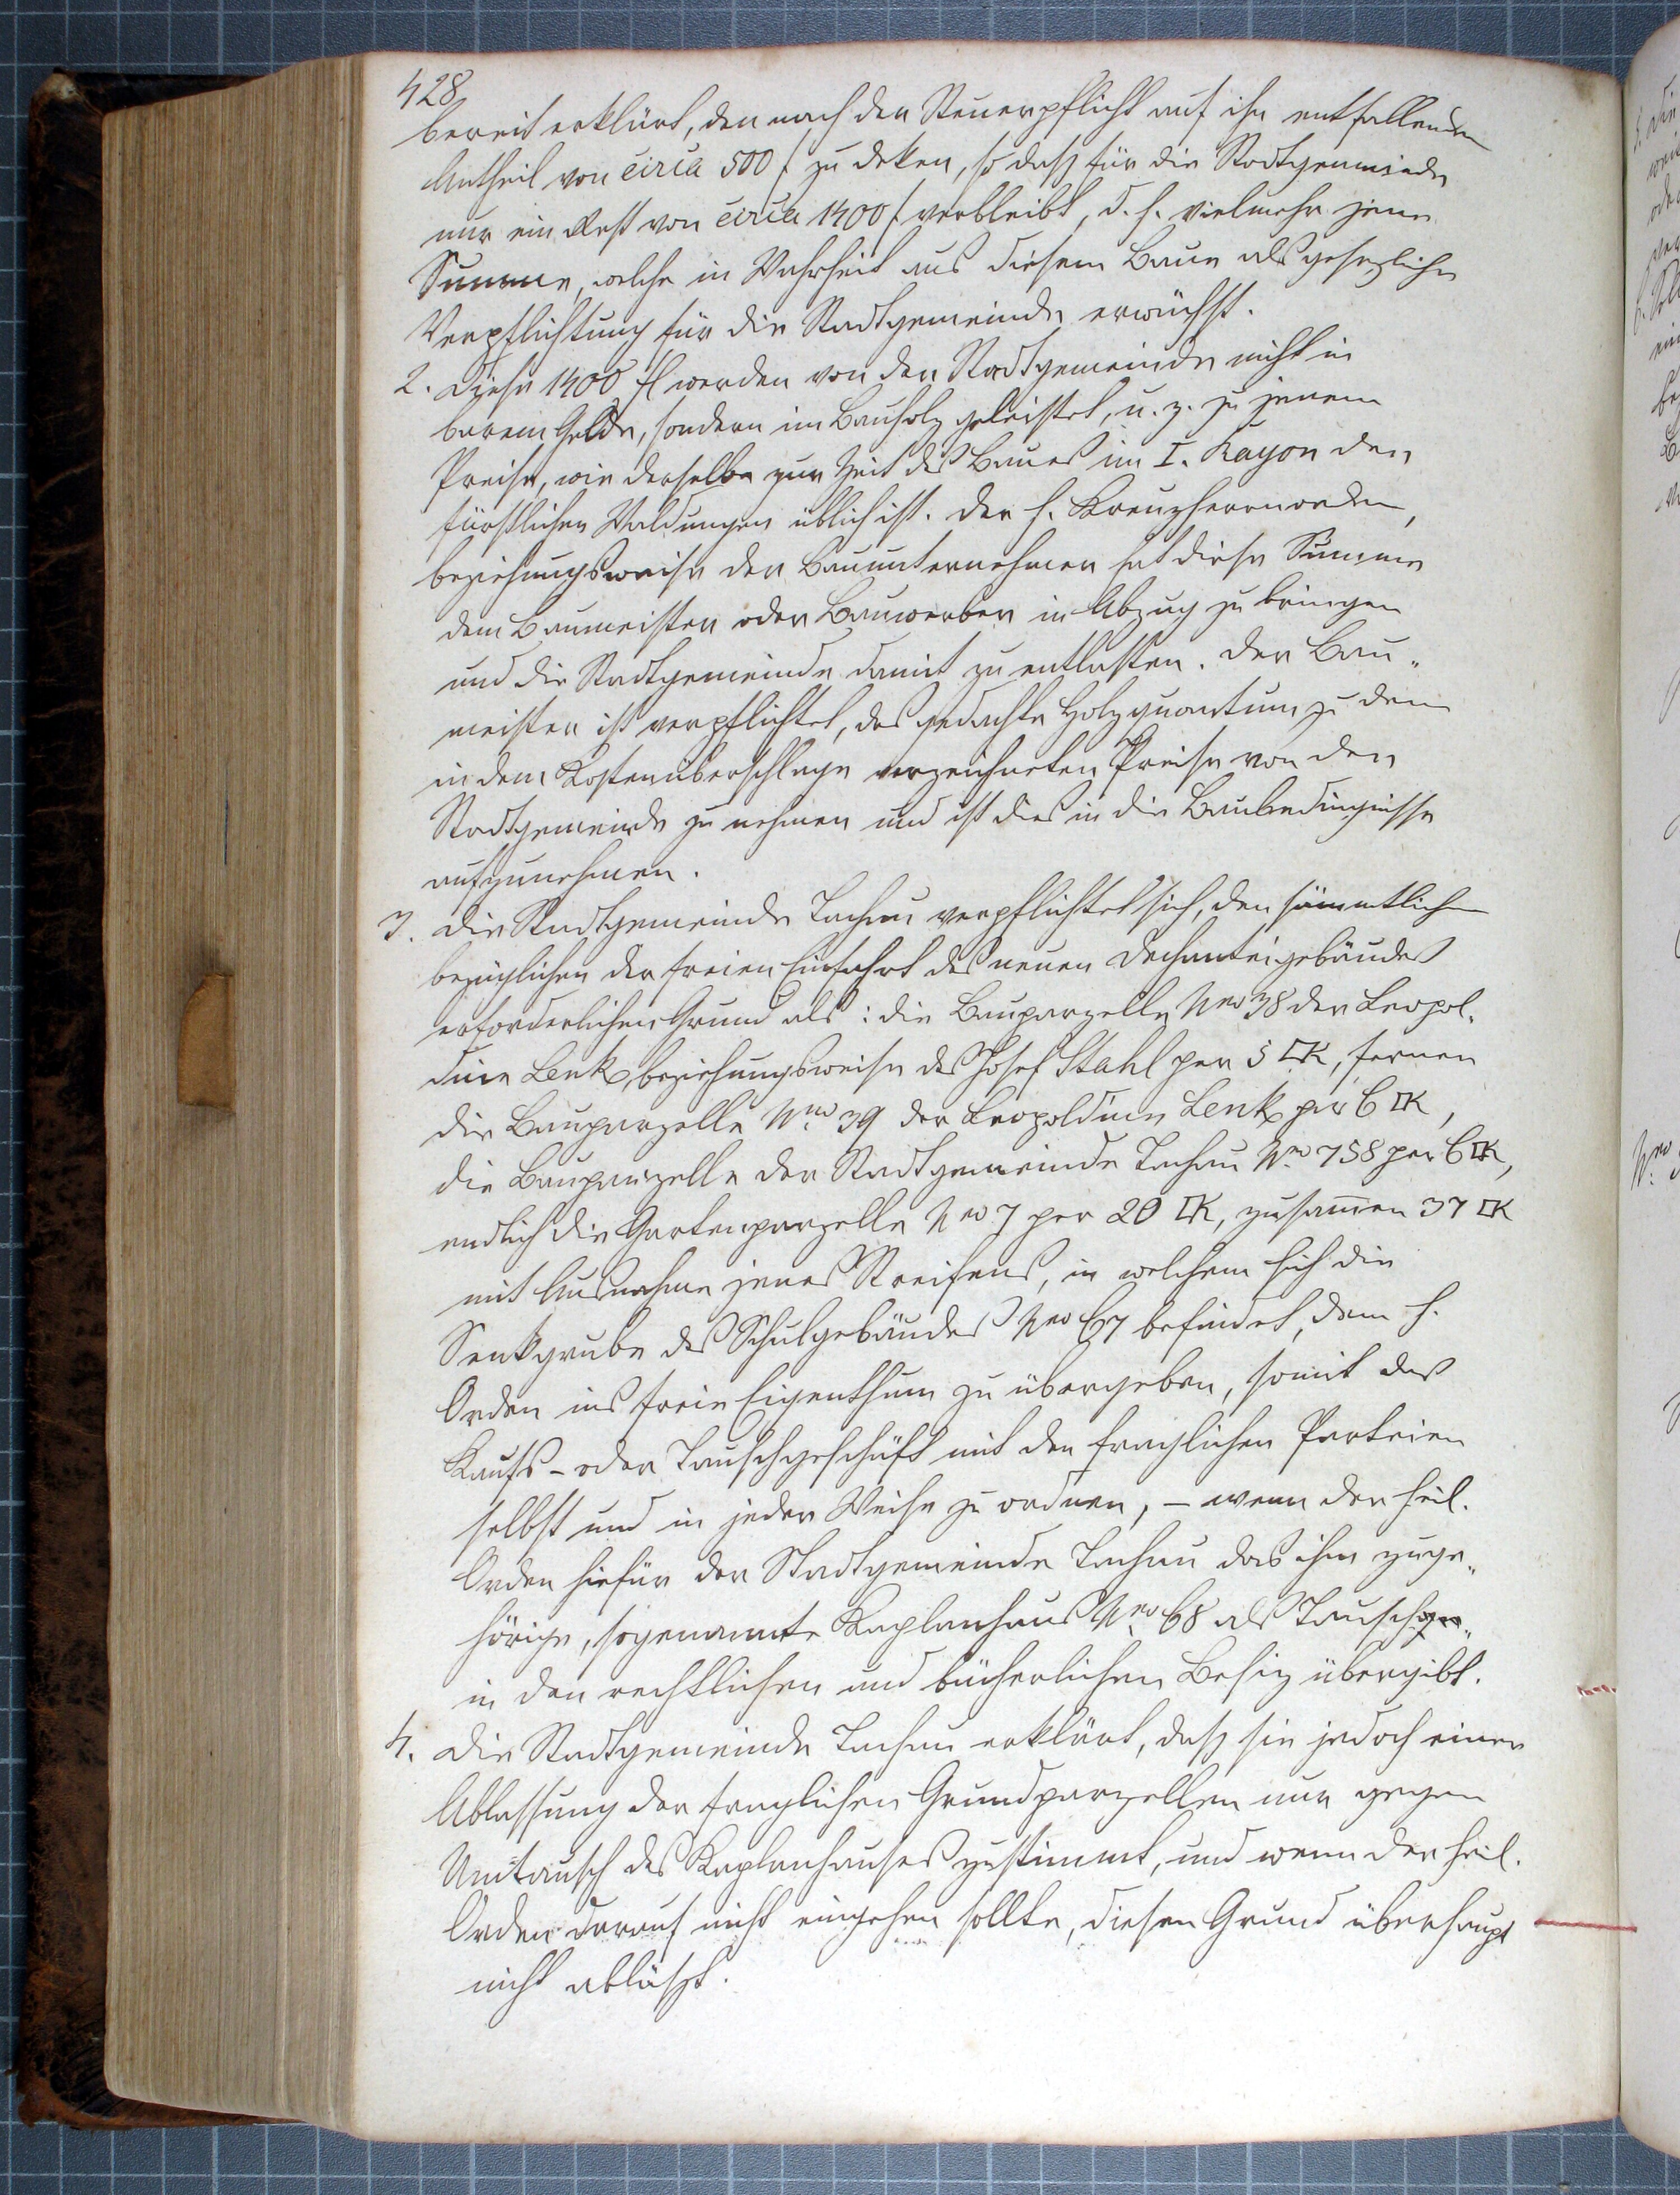 428
bereit erklärt, den nach der Steuerpflicht auf ihn entfallenden
Antheil von circa 500 f zu deken, so daß für die Stadtgemeinde
nur ein Rest von circa 1400 f verbleibt, d. h. vielmehr jene
Summe, welche in Wahrheit aus diesem Baue als gesezliche
Verpflichtung für die Stadtgemeinde erwächst.
2. Diese 1400 fl werden von der Stadtgemeinde nicht in
barem Gelde, sondern im Bauholz geleistet, u. z. zu jenem
Preise, wie derselbe zur Zeit des Baues im I. Rayon der
fürstlichen Waldungen üblich ist. Der h. Kreuzherrnorden,
beziehungsweise der Bauunternehmer hat diese Summe
dem Baumeister oder Bauwerber in Abzug zu bringen
und die Stadtgemeinde damit zu entlasten. Der Bau„
meister ist verpflichtet, das gedachte Holzquantum zu dem
in dem Kostenüberschlage verzeichneten Preise von der
Stadtgemeinde zu nehmen und ist dies in die Baubedingnisse
aufzunehmen.
3. Die Stadtgemeinde Tachau verpflichtet sich, den sämmtlichen
bezüglichen der freien Einfahrt des neuen Dechanteigebäudes
erforderlichen Grund als: die Bauparzelle Nro 38 der Leopol„
dine Lenk, beziehungsweise des Josef Stahl per 5 □K, ferner
die Bauparzelle Nro 39 der Leopoldine Lenk per 6 □K,
die Bauparzelle der Stadtgemeinde Tachau Nro 758 per 6 □K,
endlich die Gartenparzelle Nro 7 per 20 □K, zusam̅en 37 □K
mit Ausnahme jenes Streifens, in welchem sich die
Senkgrube des Schulgebäudes Nro 67 befindet, dem h.
Orden ins freie Eigenthum zu übergeben, somit das
Kaufs- oder Tauschgeschäft mit den fraglichen Parteien
selbst und in jeder Weise zu ordnen, – wenn der heil.
Orden hiefür der Stadtgemeinde Tachau das ihm zuge„
hörige, sogenannte Kaplanhaus Nro 68 als Tausch
in den rechtlichen und bücherlichen Besiz übergibt.
4. Die Stadtgemeinde Tachau erklärt, daß sie jedoch einer
Ablassung der fraglichen Grundparzellen nur gegen
Umtausch des Kaplanhauses zustimmt, und wenn der heil.
Orden darauf nicht eingehen sollte, diesen Grund überhaupt
nicht abläßt.